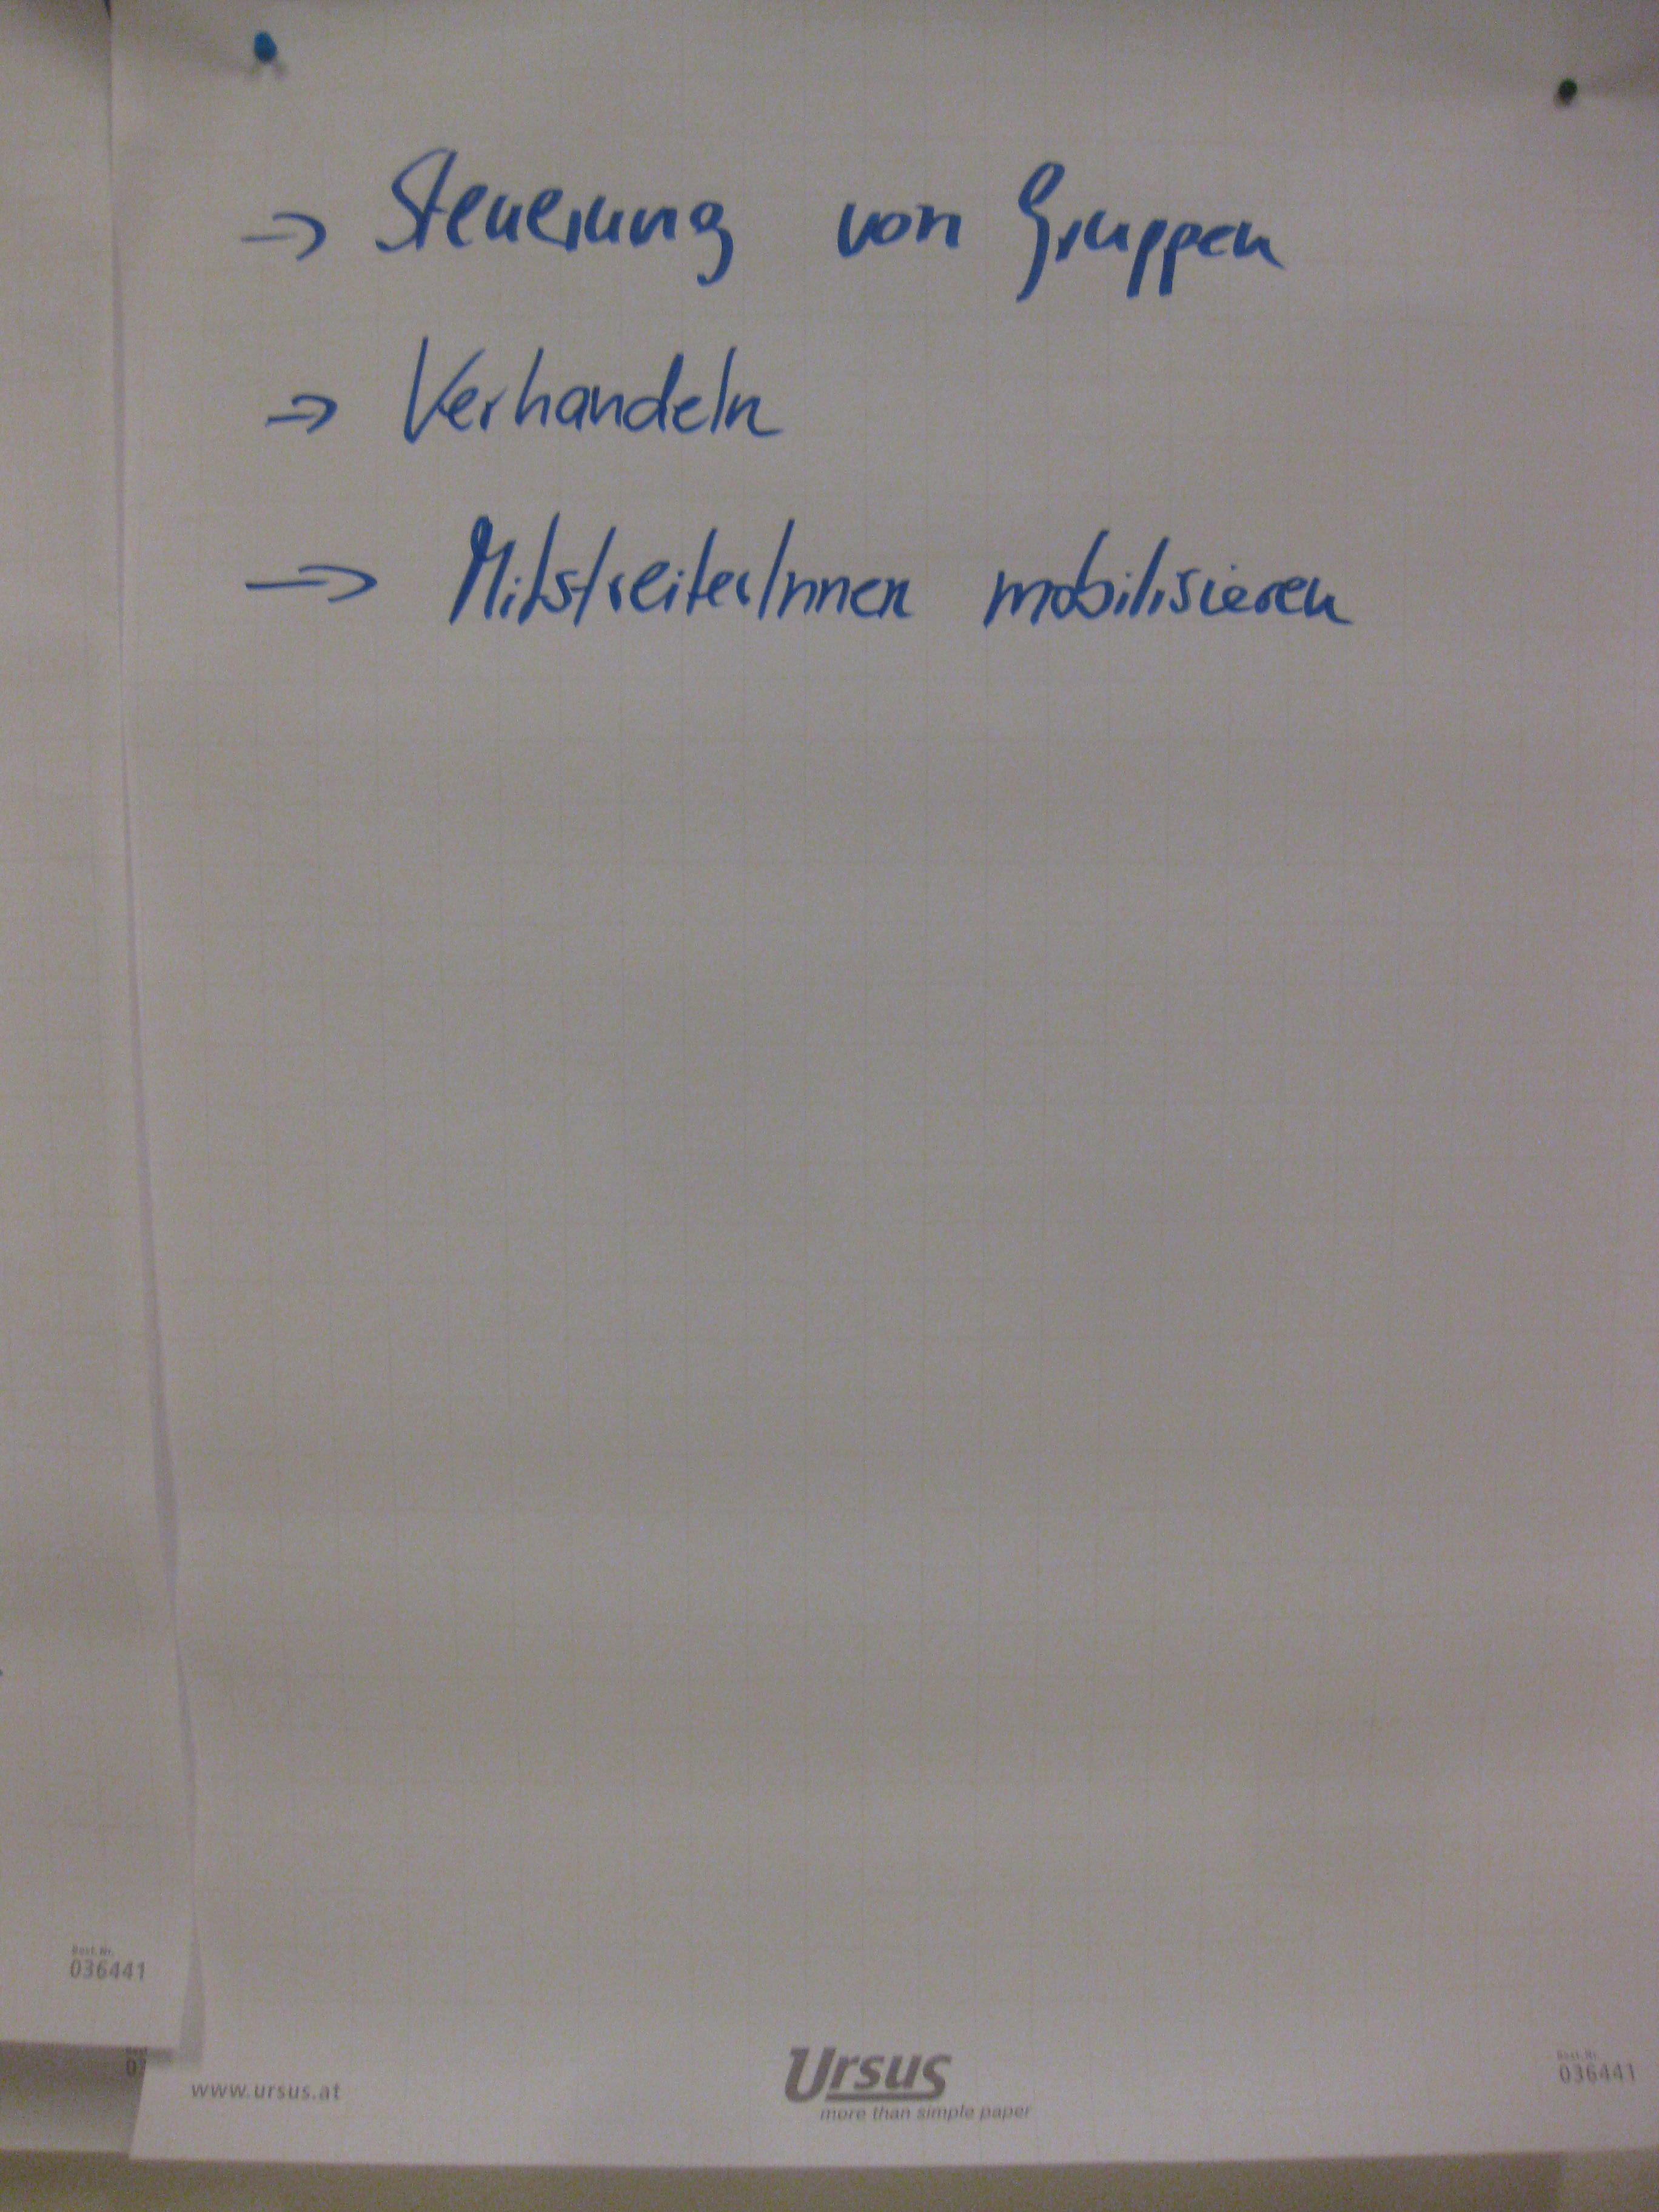 → Steuerung von Gruppen
→ Verhandeln
→ MitstreiterInnen mobilisieren
Best. Nr.
036441
www.ursus.at
Ursus
more than simple paper
Best. Nr.
036441